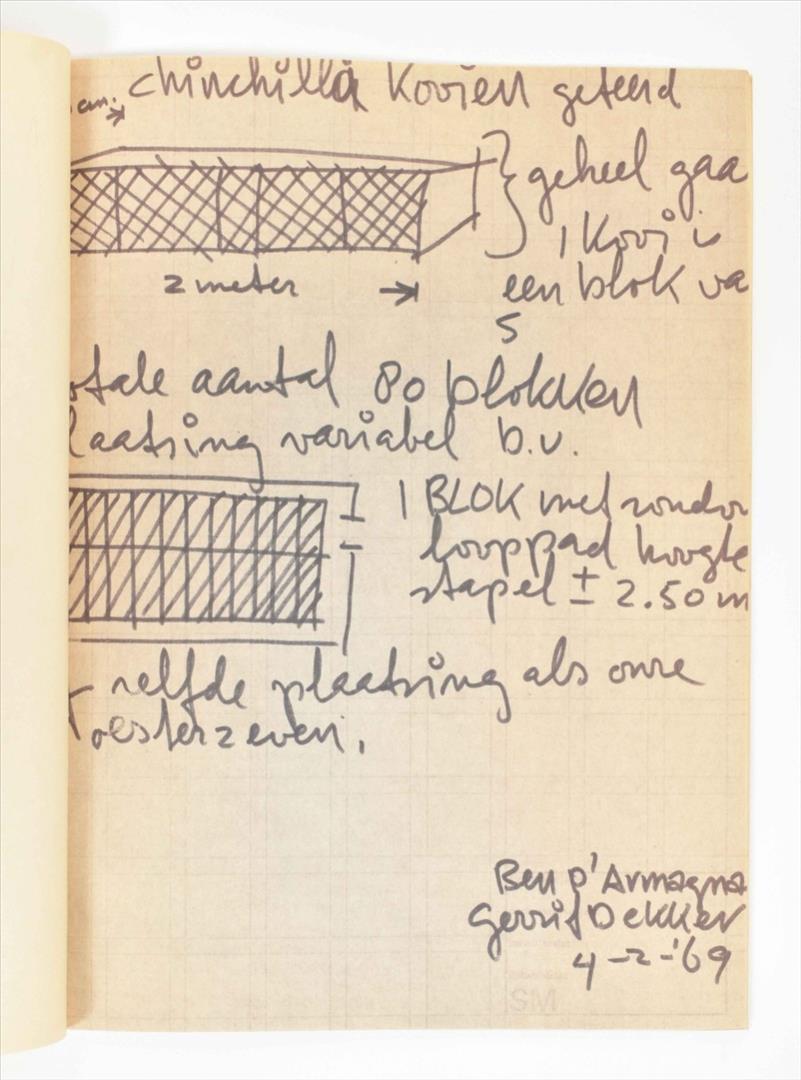 cm. chinchilla kooien geteerd
geheel gaa
1 kooi i
2 meter een blok va
5
otale aantal 80 blokken
laatsing variabel b.v.
1 BLOK met rondom
looppad hoogte
stapel ± 2.50 m
zelfde plaatsing als onze
oesterzeven.
Ben d'Armagna
Gerrit Dekker
4-2-'69
SM